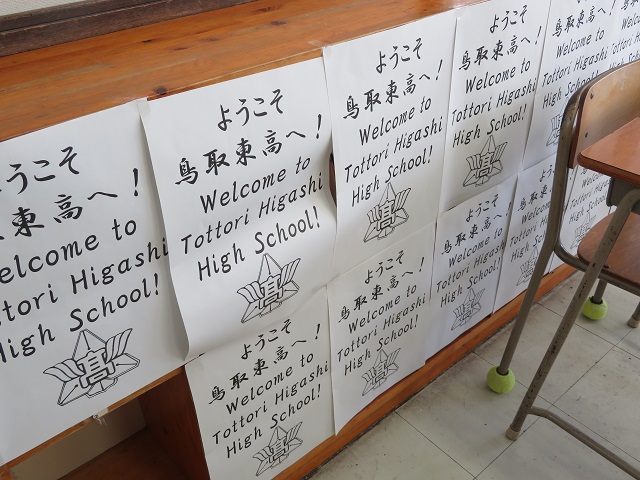 ようこそ
取東高へ！
Welcome to
ttori Higashi
High School!
高
ようこそ
鳥取東高へ！
Welcome to
Tottori Higashi
High School!
高
ようこそ
鳥取東高へ！
Welcome to
Tottori Higashi
High School!
高
ようこそ
鳥取東高へ！
Welcome to
Tottori Higashi
High School!
高
ようこそ
鳥取東高
Welcome to
Tottori
High
ようこそ
鳥取東高へ！
Welcome to
Tottori Higashi
High School!
高
ようこそ
鳥取東高へ！
Welcome to
Tottori Higashi
High School!
高
ようこそ
鳥取東高へ！
Welcome to
Tottori Higashi
High School!
高